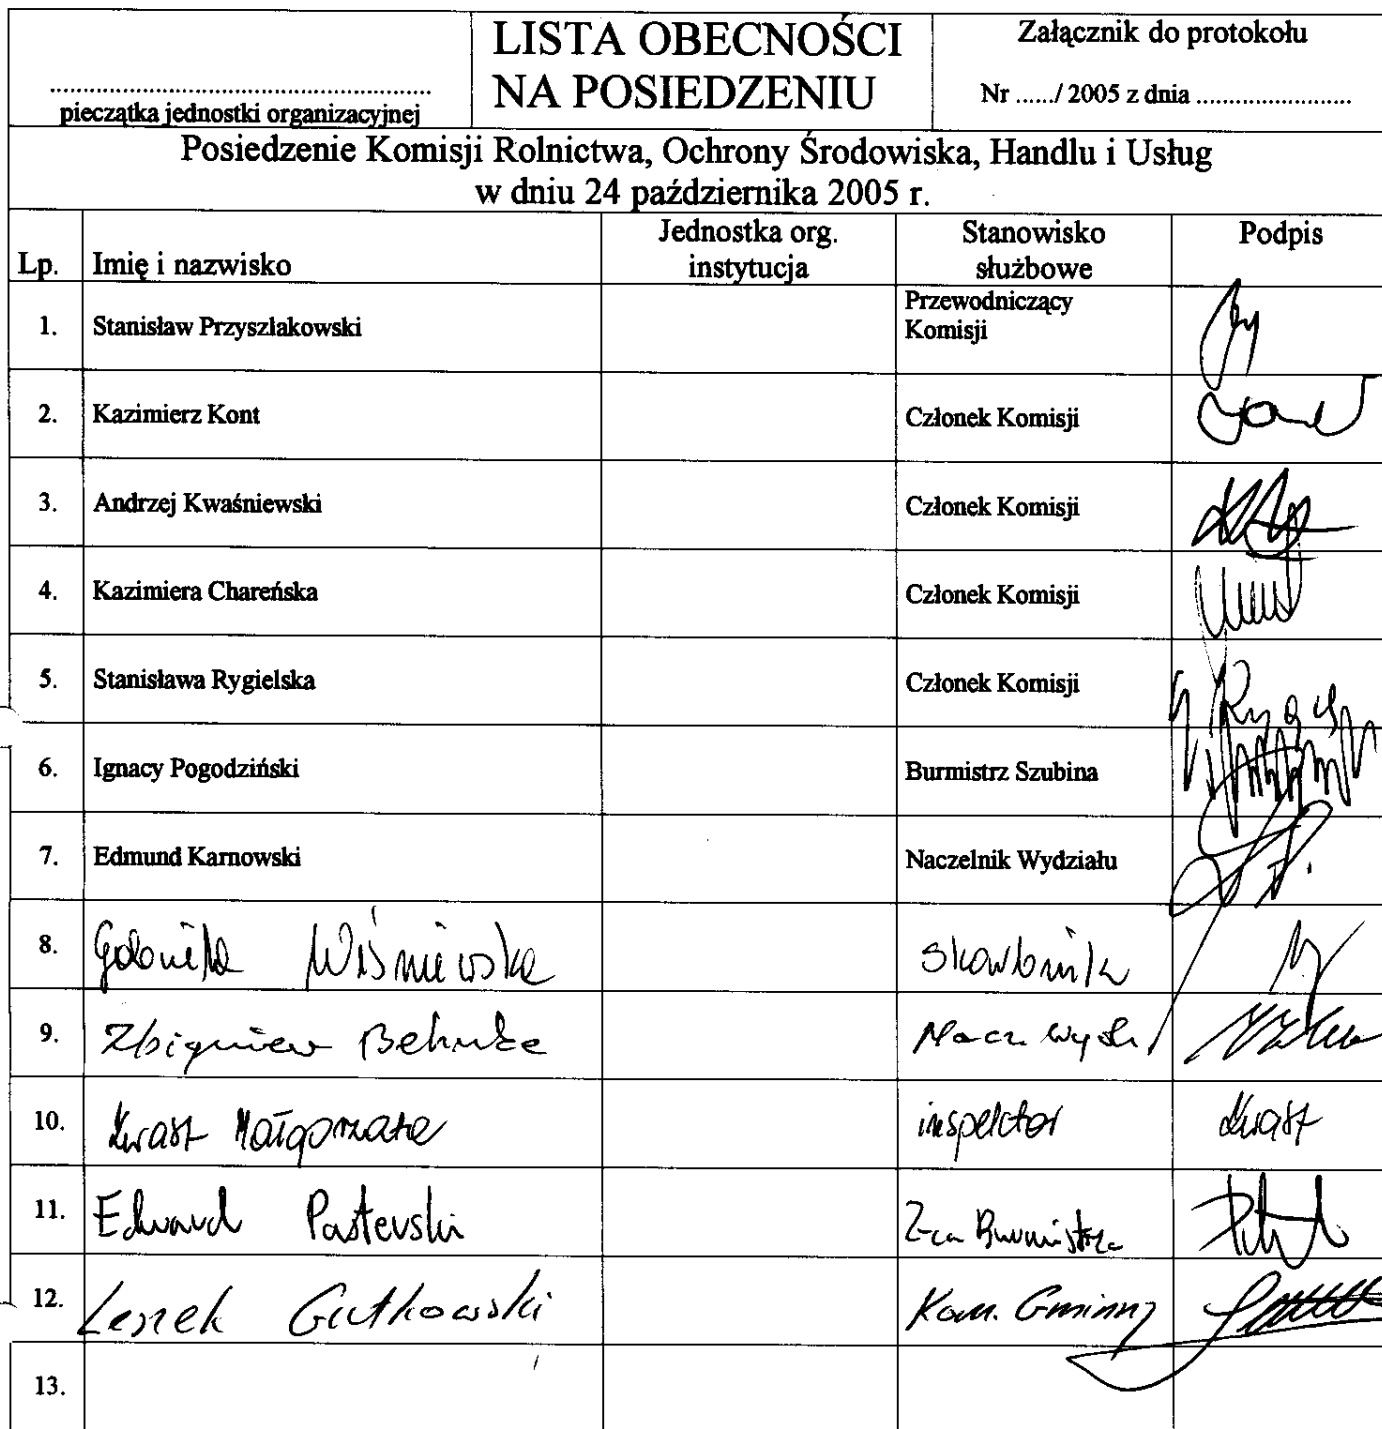 LISTA OBECNOŚCI
NA POSIEDZENIU
Załącznik do protokołu
Nr ....../ 2005 z dnia .......................
..........................................................
pieczątka jednostki organizacyjnej
Posiedzenie Komisji Rolnictwa, Ochrony Środowiska, Handlu i Usług
w dniu 24 października 2005 r.
Lp. Imię i nazwisko Jednostka org. instytucja Stanowisko służbowe Podpis
1. Stanisław Przyszlakowski Przewodniczący Komisji
2. Kazimierz Kont Członek Komisji
3. Andrzej Kwaśniewski Członek Komisji
4. Kazimiera Chareńska Członek Komisji
5. Stanisława Rygielska Członek Komisji
6. Ignacy Pogodziński Burmistrz Szubina
7. Edmund Karnowski Naczelnik Wydziału
8. Wiśniewska skarbnik
9. Zbigniew Behnke Nacz. Wydz.
10. Kwast Małgorzata inspektor Kwast
11. Edward Z-ca Burmistrza
12. Leszek Gutkowski Kom. Gminny
13.